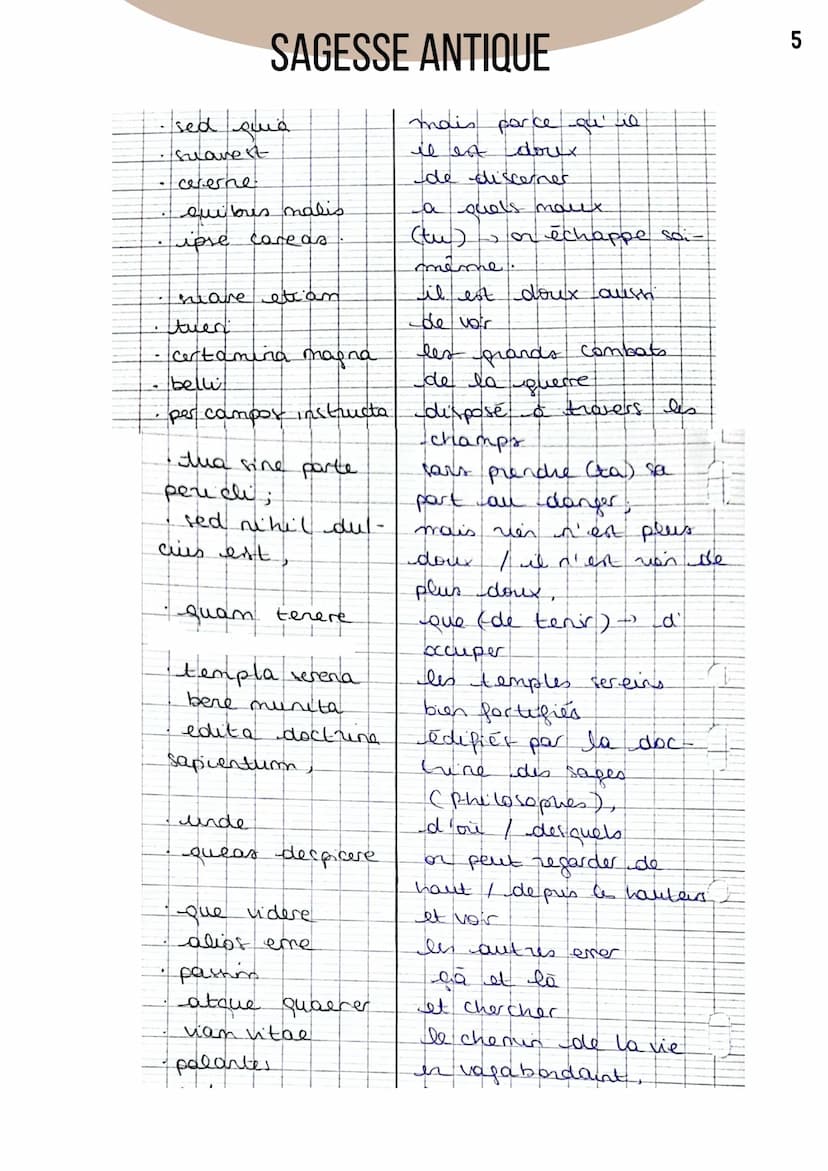 SAGESSE ANTIQUE
5
· sed quia mais parce qu'il
· suavest il est doux
· cernere de discerner
· quibus malis a quels maux
· ipse careas. (tu) → on échappe soi-
même.
· suave etiam il est doux aussi
· tueri de voir
· certamina magna les grands combats
· belli de la guerre
· per campos instructa disposé à travers les
champs
· tua sine parte sans prendre (ta) sa
pericli ; part au danger ;
· sed nihil dul- mais rien n'est plus
cius est, doux / il n'est rien de
plus doux,
· quam tenere que (de tenir) → d'
occuper
· templa serena les temples sereins
· bene munita bien fortifiés
· edita doctrina édifiés par la doc-
sapientum, trine des sages
(philosophes),
· unde d'où / desquels
· queas despicere on peut regarder de
haut / depuis les hauteurs
· que videre et voir
· alios erre les autres errer
· passim çà et là
· atque quaerer et chercher
· viam vitae le chemin de la vie
· palantes en vagabondant,